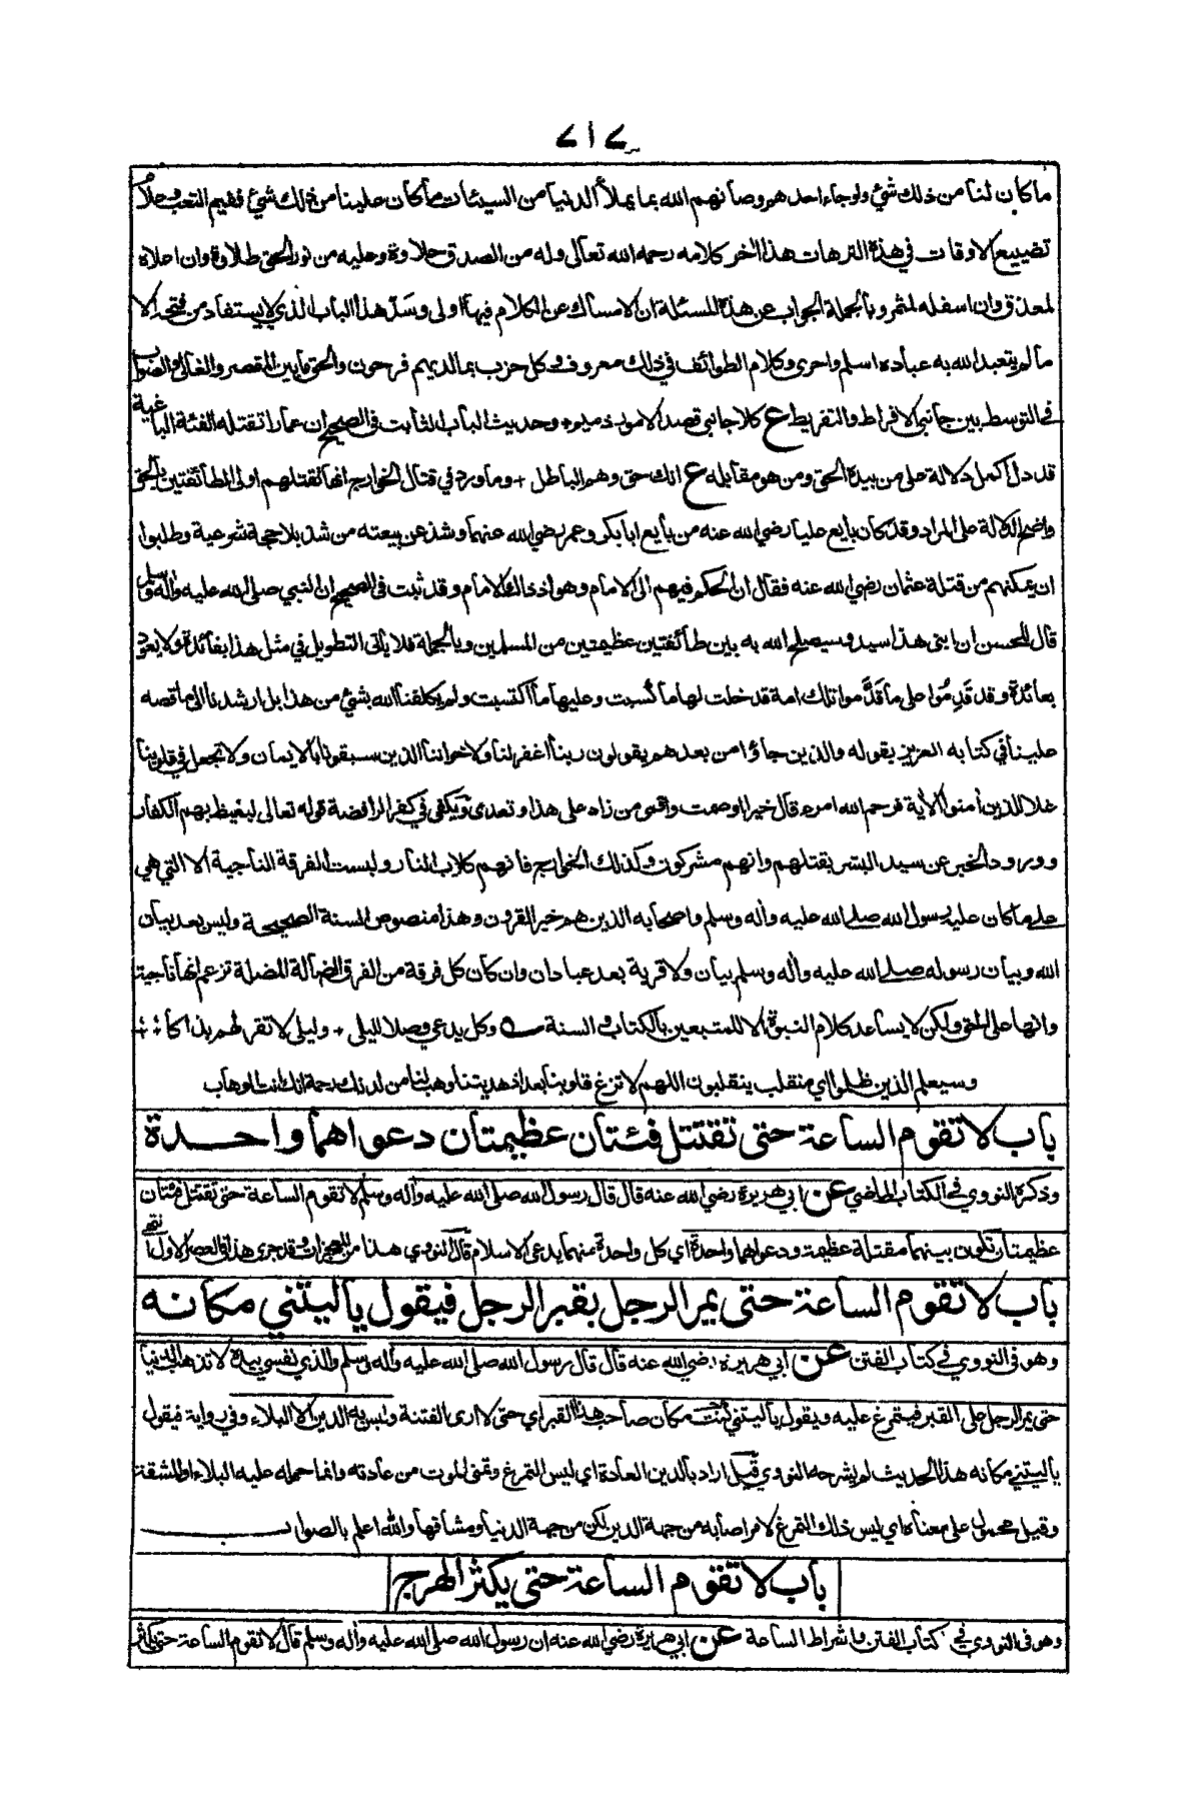 ٧١٧
ما كان لنا من ذلك شئ ولو جاء احدهم وصانهم الله بما يملأ الدنيا من السيئات ما كان علينا من ذلك شئ ففيم التعب وعلام
تضييع الاوقات في هذه الترهات هذا اٰخر كلامه رحمه الله تعالى وله من الصدق حلاوة وعليه من نور الحق طلاوة وان اعلاه
لمعذق وان اسفله لمثمر وبالجملة الجواب عن هذه المسئلة ان الامساك عن الكلام فيها اولى وسد هذا الباب الذي لا يستفاد من فتحه الا
ما لم يتعبد الله به عباده اسلم واحرى وكلام الطوائف في ذلك معروف وكل حزب بما لديهم فرحون والحق ما بين المقصر والغالي والصواب
في التوسط بين جانبي الافراط والتفريط ع كلا جانبي قصد الامور ذميم + وحديث الباب الثابت في الصحيح ان عمارا تقتله الفئة الباغية
قد دل اكمل دلالة على من بيده الحق ومن هو مقابله ع انك حق وهم الباطل + وما ورد في قتال الخوارج انها تقتلهم اولى الطائفتين بالحق
واضح الدلالة على المراد وقد كان بايع عليا رضي الله عنه من بايع ابا بكر وعمر رضي الله عنهما وشذ عن بيعته من شذ بلا حجة شرعية وطلبوا
ان يمكنهم من قتلة عثمان رضي الله عنه فقال ان الحكم فيهم الى الامام وهو اذ ذاك الامام وقد ثبت في الصحيح ان النبي صلى الله عليه واٰله وسلم
قال للحسن ان ابني هذا سيد وسيصلح الله به بين طائفتين عظيمتين من المسلمين وبالجملة فلا يأتي التطويل في مثل هذا بفائدة ولا يعود
بعائدة وقد قَدِمُوا على ما قَدَّموا تلك امة قد خلت لها ما كسبت وعليها ما اكتسبت ولم يكلفنا الله بشئ من هذا بل ارشدنا الى ما قصه
علينا في كتابه العزيز بقوله والذين جاؤا من بعدهم يقولون ربنا اغفر لنا ولاخواننا الذين سبقونا بالايمان ولا تجعل في قلوبنا
غلا للذين اٰمنوا الاٰية فرحم الله امرء قال خيرا او صمت واقسى من زاد على هذا وتعدى ويكفي في كفر الرافضة قوله تعالى ليغيظ بهم الكفار
وورود الخبر عن سيد البشر بقتلهم وانهم مشركون وكذلك الخوارج فانهم كلاب النار وليست الفرقة الناجية الا التي هي
على ما كان عليه رسول الله صلى الله عليه واٰله وسلم واصحابه الذين هم خير القرون وهذا منصوص السنة الصحيحة وليس بعد بيان
الله وبيان رسوله صلى الله عليه واٰله وسلم بيان ولا قرية بعد عبادان وان كان كل فرقة من الفرق الضالة المضلة تزعم انها ناجية
وانها على الحق ولكن لا يساعد كلام النبوة الا للمتبعين بالكتاب والسنة وكل يدعي وصلا لليلى + وليلى لا تقر لهم بذاكا
وسيعلم الذين ظلموا اي منقلب ينقلبون اللهم لا تزغ قلوبنا بعد اذ هديتنا وهب لنا من لدنك رحمة انك انت الوهاب
باب لا تقوم الساعة حتى تقتتل فئتان عظيمتان دعواهما واحدة
وذكره النووي في الكتاب الماضي عن ابي هريرة رضي الله عنه قال قال رسول الله صلى الله عليه واٰله وسلم لا تقوم الساعة حتى تقتتل فئتان
عظيمتان تكون بينهما مقتلة عظيمة ودعواهما واحدة اي كل واحدة منهما يدعي الاسلام قال النووي هذا من المعجزات وقد جرى هذا في العصر الاول انتهى
باب لا تقوم الساعة حتى يمر الرجل بقبر الرجل فيقول ياليتني مكانه
وهو في النووي في كتاب الفتن عن ابي هريرة رضي الله عنه قال قال رسول الله صلى الله عليه واٰله وسلم والذي نفسي بيده لا تذهب الدنيا
حتى يمر الرجل على القبر فيتمرغ عليه ويقول ياليتني كنت مكان صاحب هذا القبر اي حتى لا ارى الفتنة وليس به الدين الا البلاء وفي رواية فيقول
ياليتني مكانه هذا الحديث لم يشرحه النووي قيل اراد بالدين العادة اي ليس التمرغ وتمنى الموت من عادته وانما حمله عليه البلاء والمشقة
وقيل محمول على معناه اي ليس ذلك التمرغ لامر اصابه من جهة الدين لكن من جهة الدنيا ومشاقها والله اعلم بالصواب
باب لا تقوم الساعة حتى يكثر الهرج
وهو في النووي في كتاب الفتن واشراط الساعة عن ابي هريرة رضي الله عنه ان رسول الله صلى الله عليه واٰله وسلم قال لا تقوم الساعة حتى يكثر